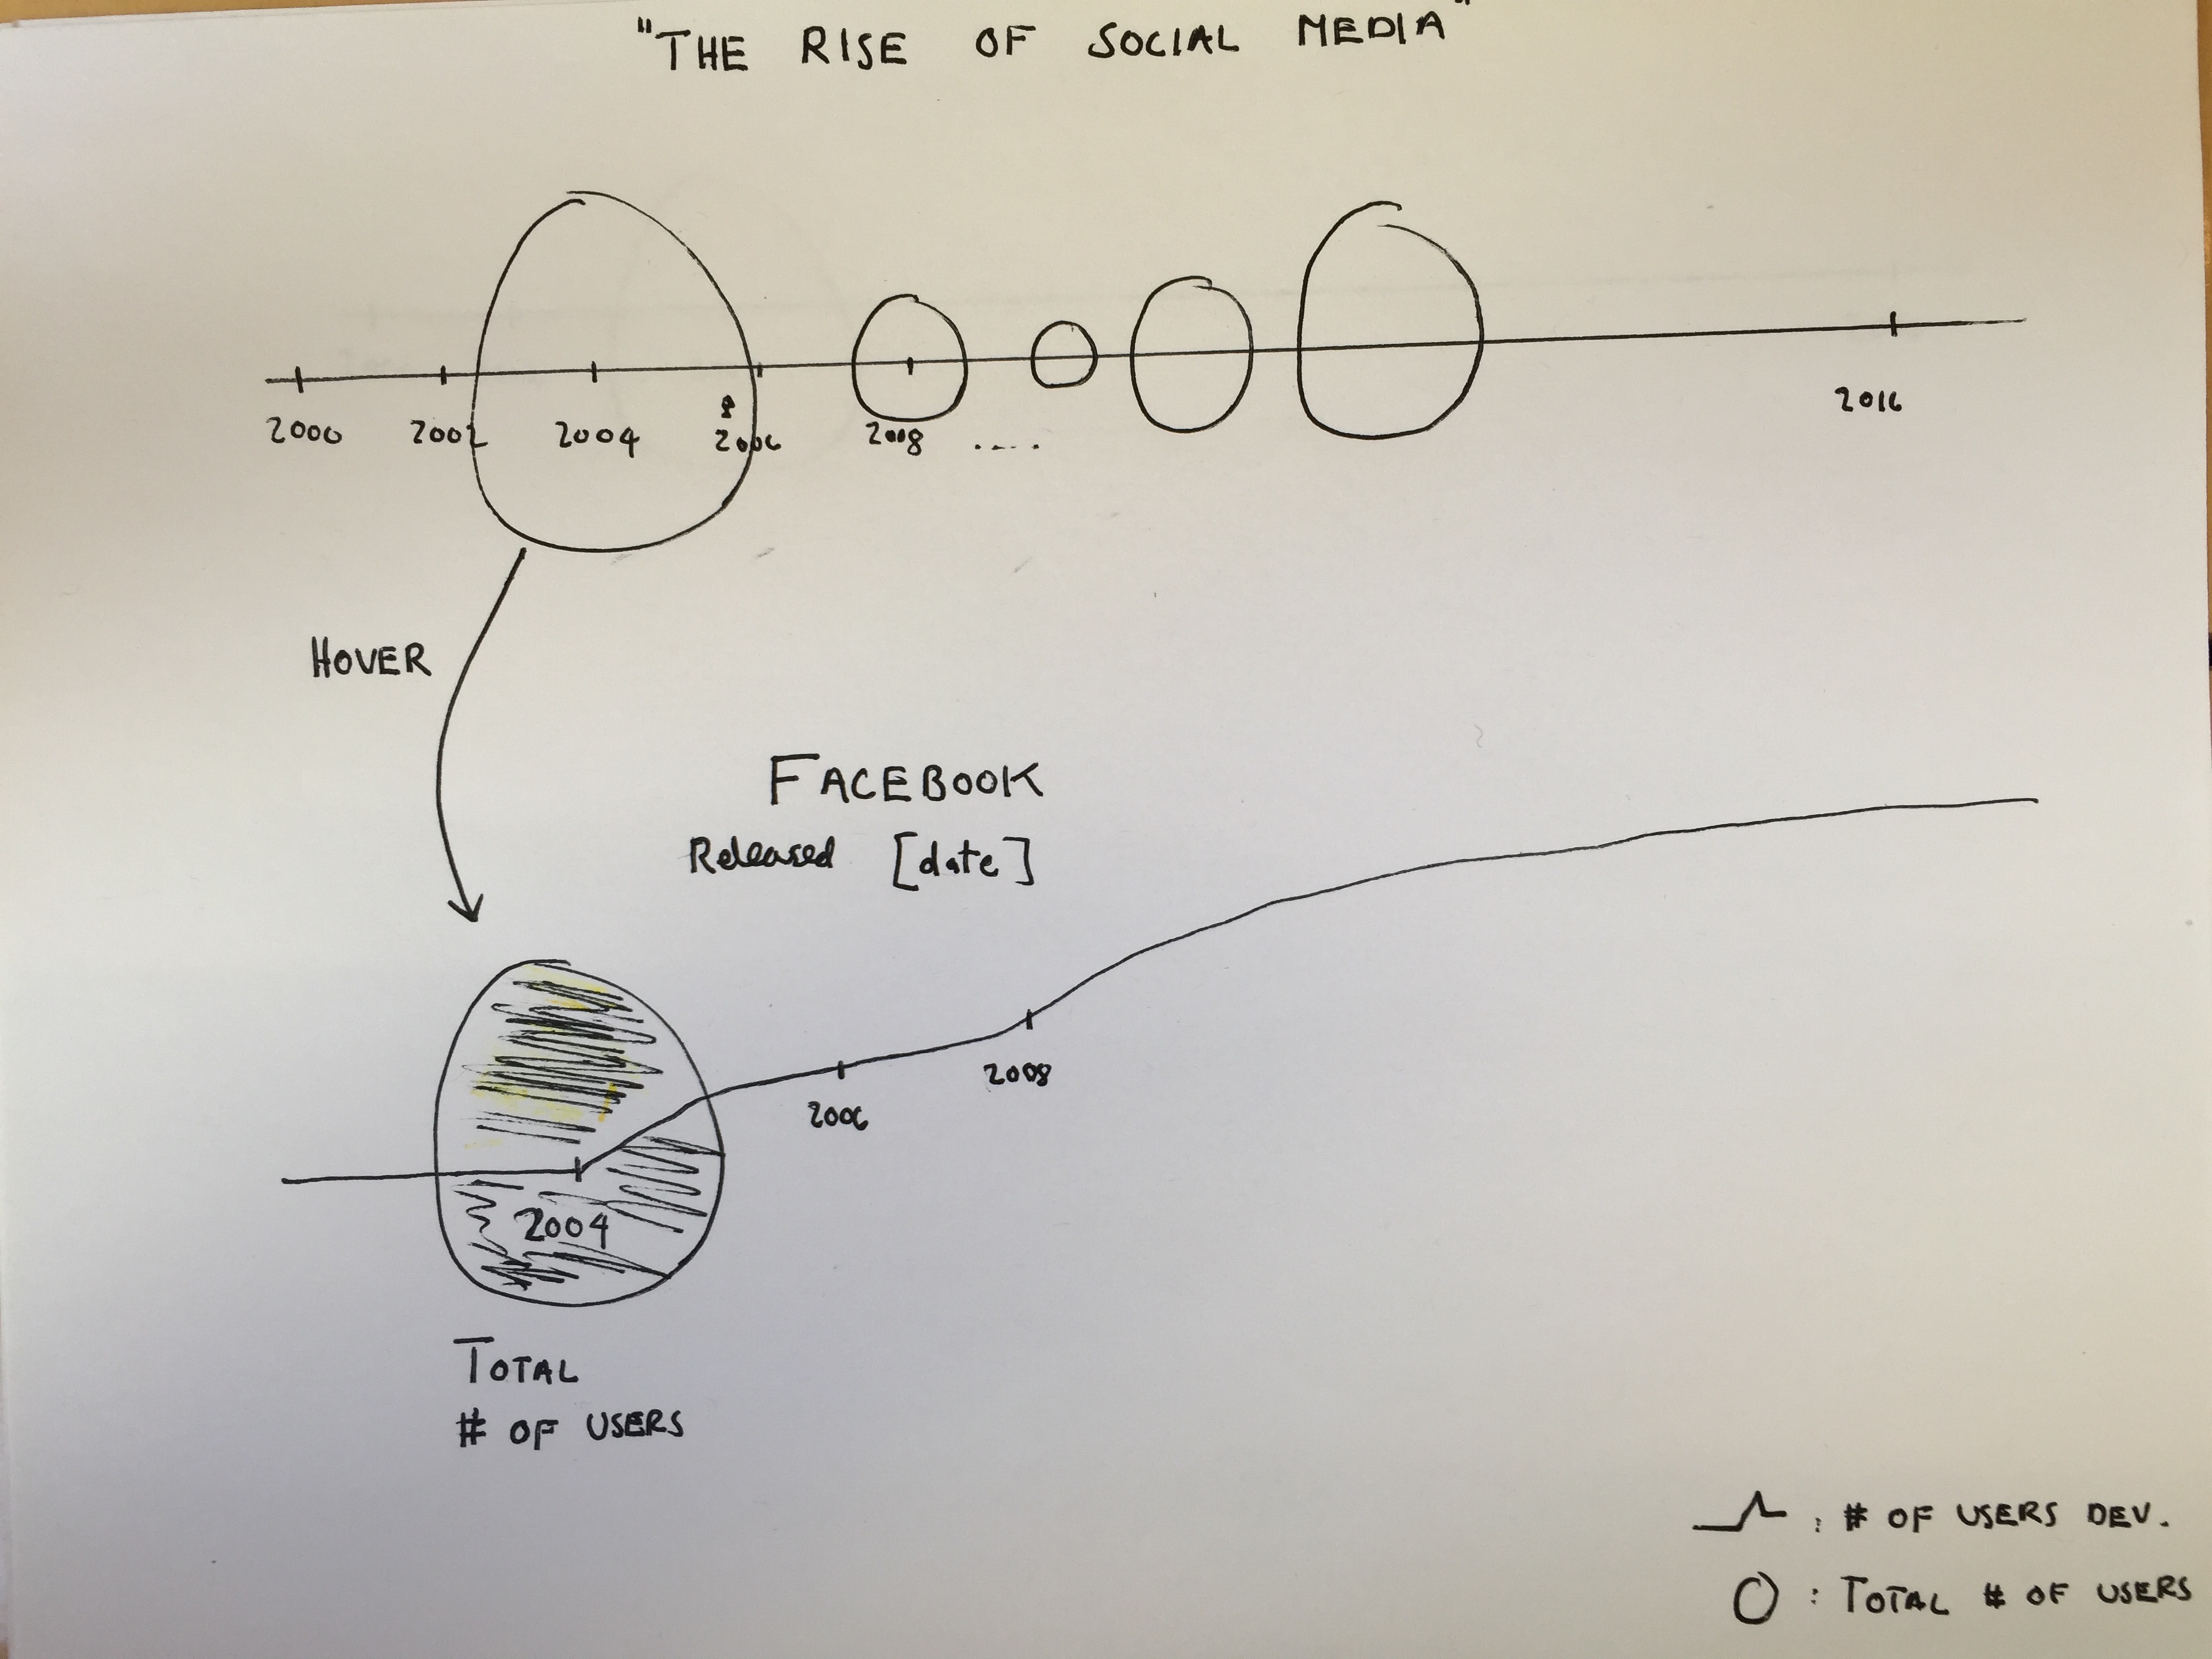 "THE RISE OF SOCIAL MEDIA"
2000 2002 2004 2006 2008 .... 2016
HOVER
FACEBOOK
Released [date]
2008
2006
2004
TOTAL
# OF USERS
: # OF USERS DEV.
: TOTAL # OF USERS